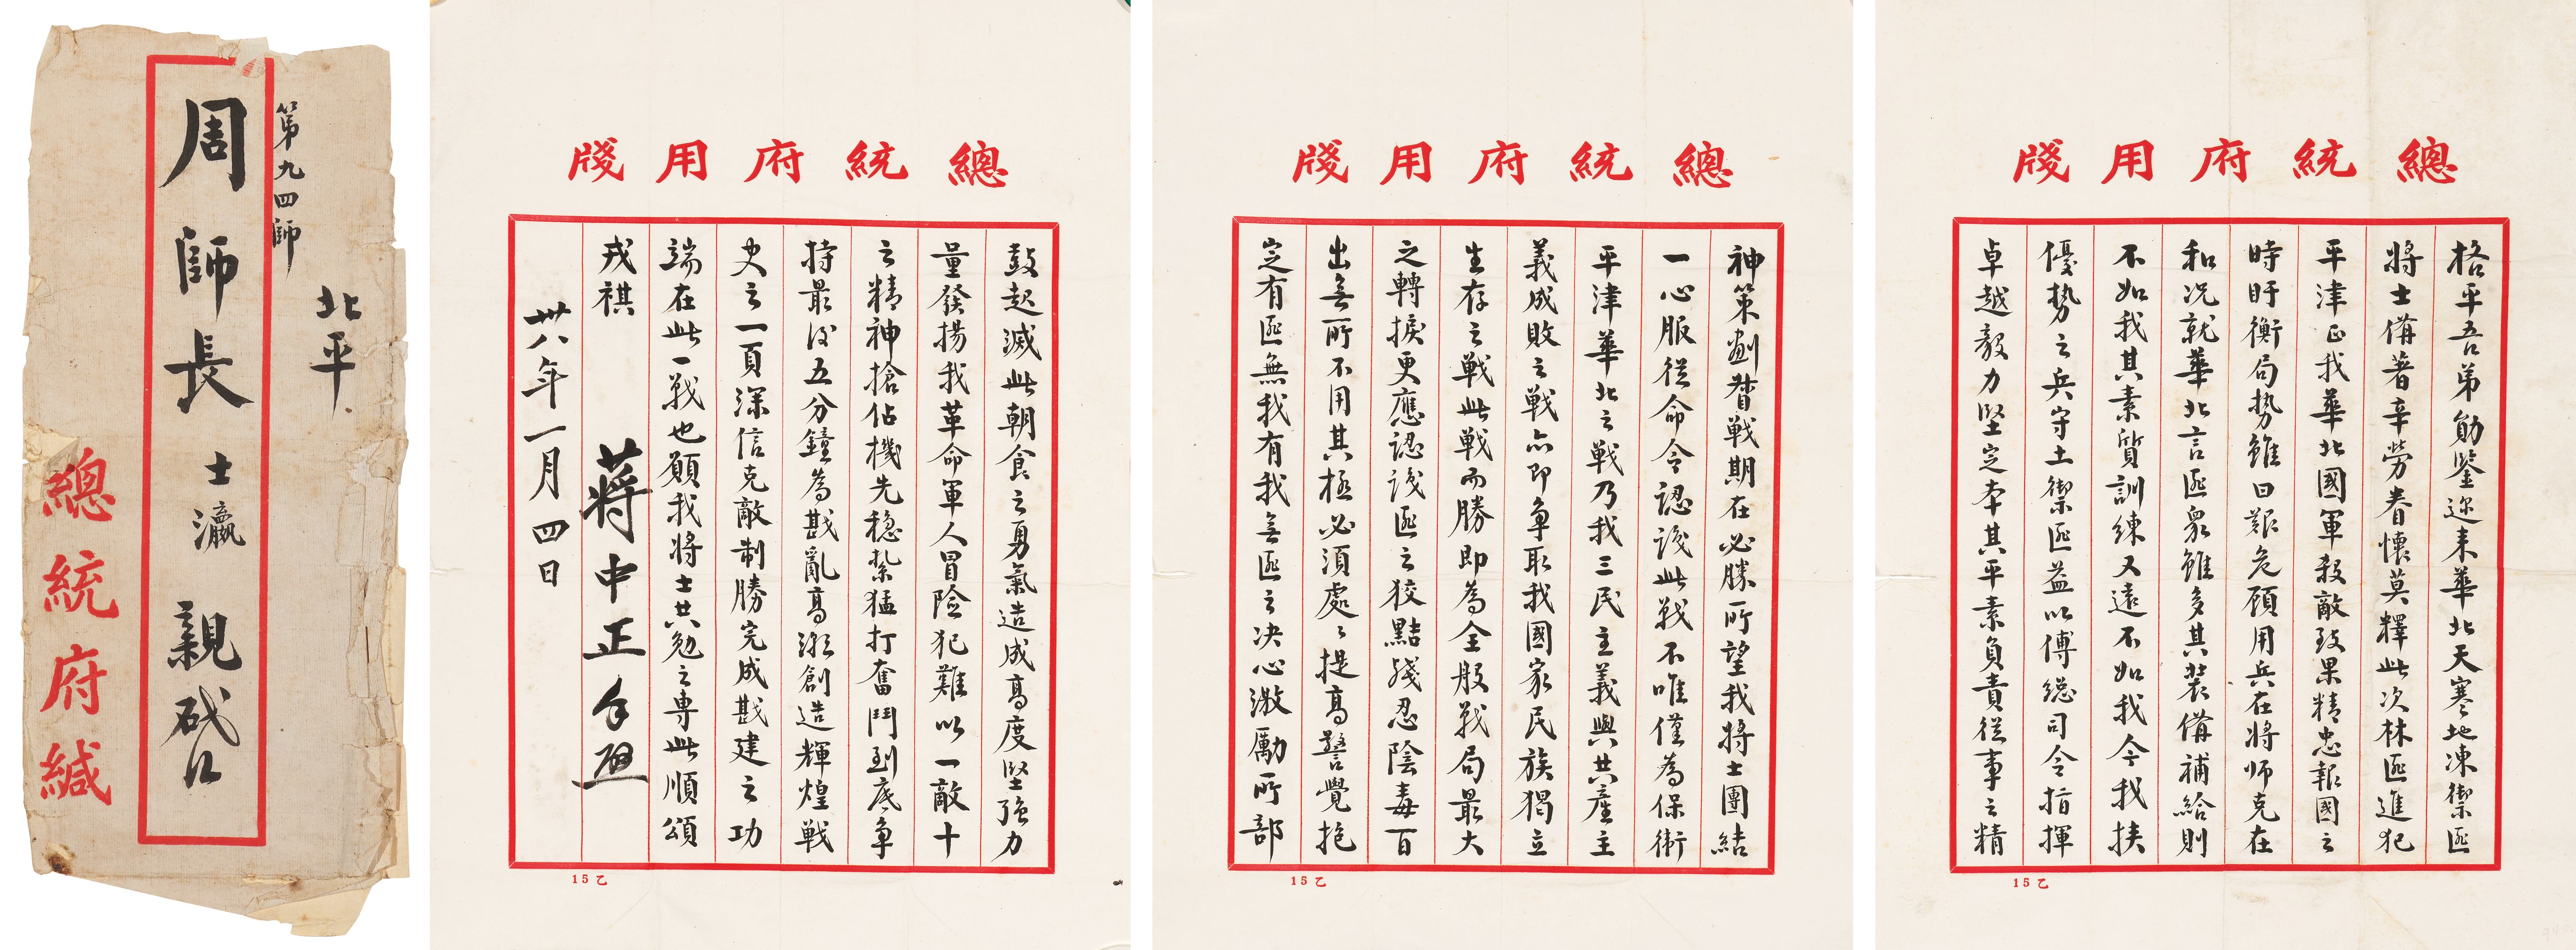 總統府用牋
格平吾弟勛鑒迩来華北天寒地凍禦匪
将士備著辛勞眷懷莫釋此次林匪進犯
平津正我華北國軍殺敵致果精忠報國之
時盱衡局勢雖曰艱危顧用兵在将师克在
和况就華北言匪衆雖多其裝備補給則
不如我其素質訓練又遠不如我今我挟
優勢之兵守土禦匪益以傅總司令指揮
卓越毅力堅定本其平素負責從事之精
15乙
總統府用牋
神策劃督戰期在必勝所望我将士團結
一心服從命令認識此戰不唯僅為保衛
平津華北之戰乃我三民主義與共產主
義成敗之戰亦即争取我國家民族獨立
生存之戰此戰而勝即為全般戰局最大
之轉捩更應認識匪之狡黠殘忍陰毒百
出無所不用其極必須處〻提高警覺抱
定有匪無我有我無匪之决心激勵所部
15乙
總統府用牋
鼓起滅此朝食之勇氣造成高度堅强力
量發揚我革命軍人冒險犯難以一敵十
之精神搶佔機先穩紮猛打奮鬥到底争
持最後五分鐘為戡亂高潮創造輝煌戰
史之一頁深信克敵制勝完成戡建之功
端在此一戰也願我将士共勉之専此順頌
戎祺
蔣中正手啟
卅八年一月四日
15乙
北平
第九四師
周師長士瀛親啟
總統府緘